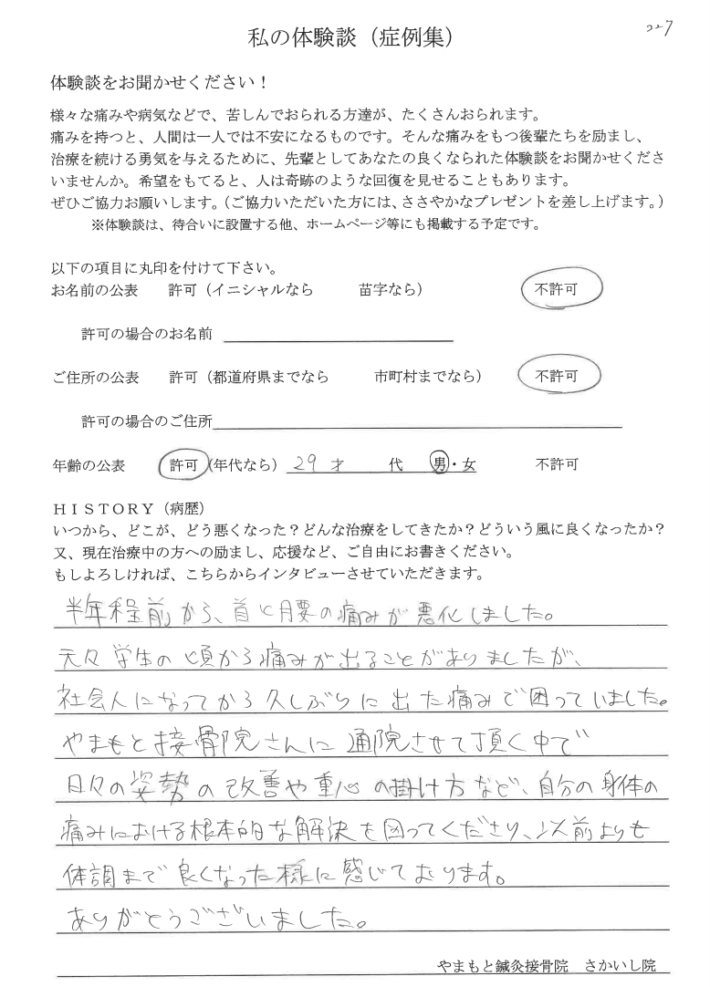 私の体験談（症例集）
体験談をお聞かせください！
様々な痛みや病気などで、苦しんでおられる方達が、たくさんおられます。
痛みを持つと、人間は一人では不安になるものです。そんな痛みをもつ後輩たちを励まし、
治療を続ける勇気を与えるために、先輩としてあなたの良くなられた体験談をお聞かせくださ
いませんか。希望をもてると、人は奇跡のような回復を見せることもあります。
ぜひご協力お願いします。（ご協力いただいた方には、ささやかなプレゼントを差し上げます。）
※体験談は、待合いに設置する他、ホームページ等にも掲載する予定です。
以下の項目に丸印を付けて下さい。
お名前の公表　許可（イニシャルなら　苗字なら）　不許可
許可の場合のお名前
ご住所の公表　許可（都道府県までなら　市町村までなら）　不許可
許可の場合のご住所
年齢の公表　許可（年代なら）　29才　代　男・女　不許可
ＨＩＳＴＯＲＹ（病歴）
いつから、どこが、どう悪くなった？どんな治療をしてきたか？どういう風に良くなったか？
又、現在治療中の方への励まし、応援など、ご自由にお書きください。
もしよろしければ、こちらからインタビューさせていただきます。
半年程前から、首と腰の痛みが悪化しました。
元々学生の頃から痛みが出ることがありましたが、
社会人になってから久しぶりに出た痛みで困っていました。
やまもと接骨院さんに通院させて頂く中で
日々の姿勢の改善や重心の掛け方など、自分の身体の
痛みにおける根本的な解決を図ってくださり、以前よりも
体調まで良くなった様に感じております。
ありがとうございました。
やまもと鍼灸接骨院　さかいし院